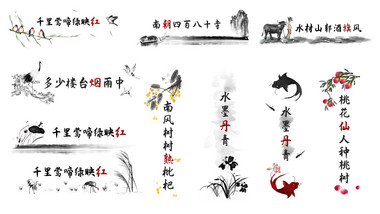 千里莺啼绿映红
南朝四百八十寺
水村山郭酒旗风
多少楼台烟雨中
千里莺啼绿映红
千里莺啼绿映红
南风树树熟枇杷
水墨丹青
水墨丹青
桃花仙人种桃树